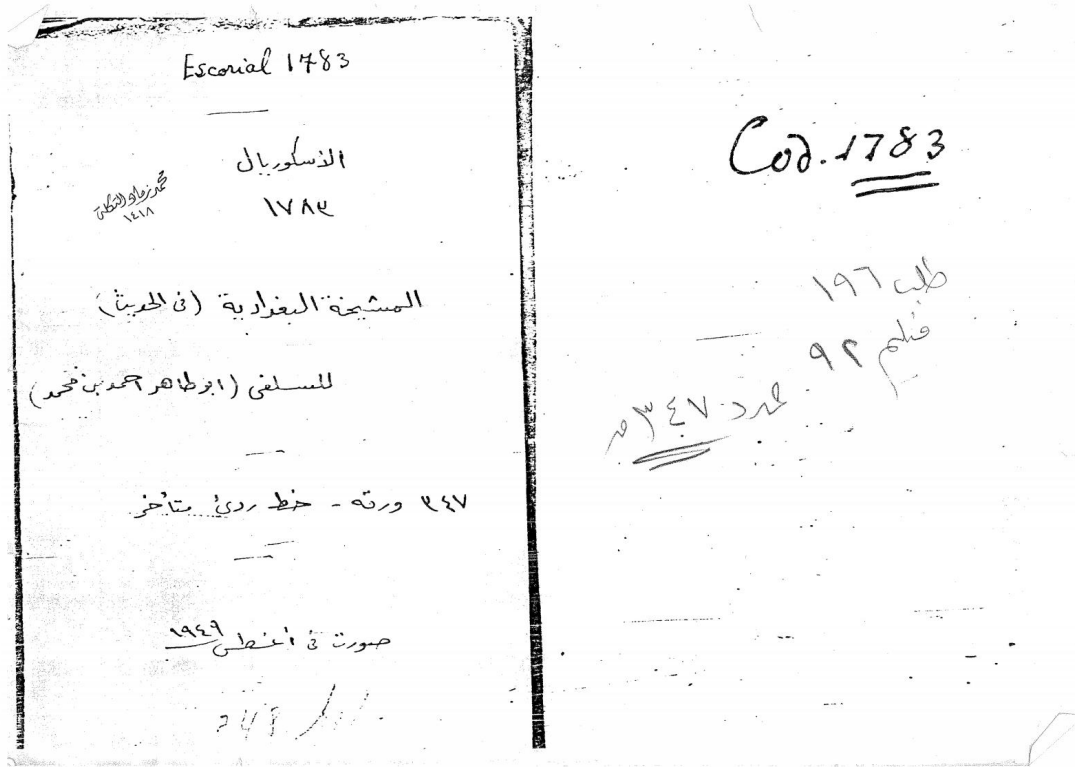 Escorial 1783
الأسكوريال
١٧٨٣
١٤١٨
المشيخة البغدادية (فى الحديث)
للسلفى (ابو طاهر احمد بن محمد)
٣٤٧ ورقه - خط ردئ متأخر
صورت فى أغسطس ١٩٤٩
Cod. 1783
طلب ١٩٦
فيلم ٩٢
٣٤٧